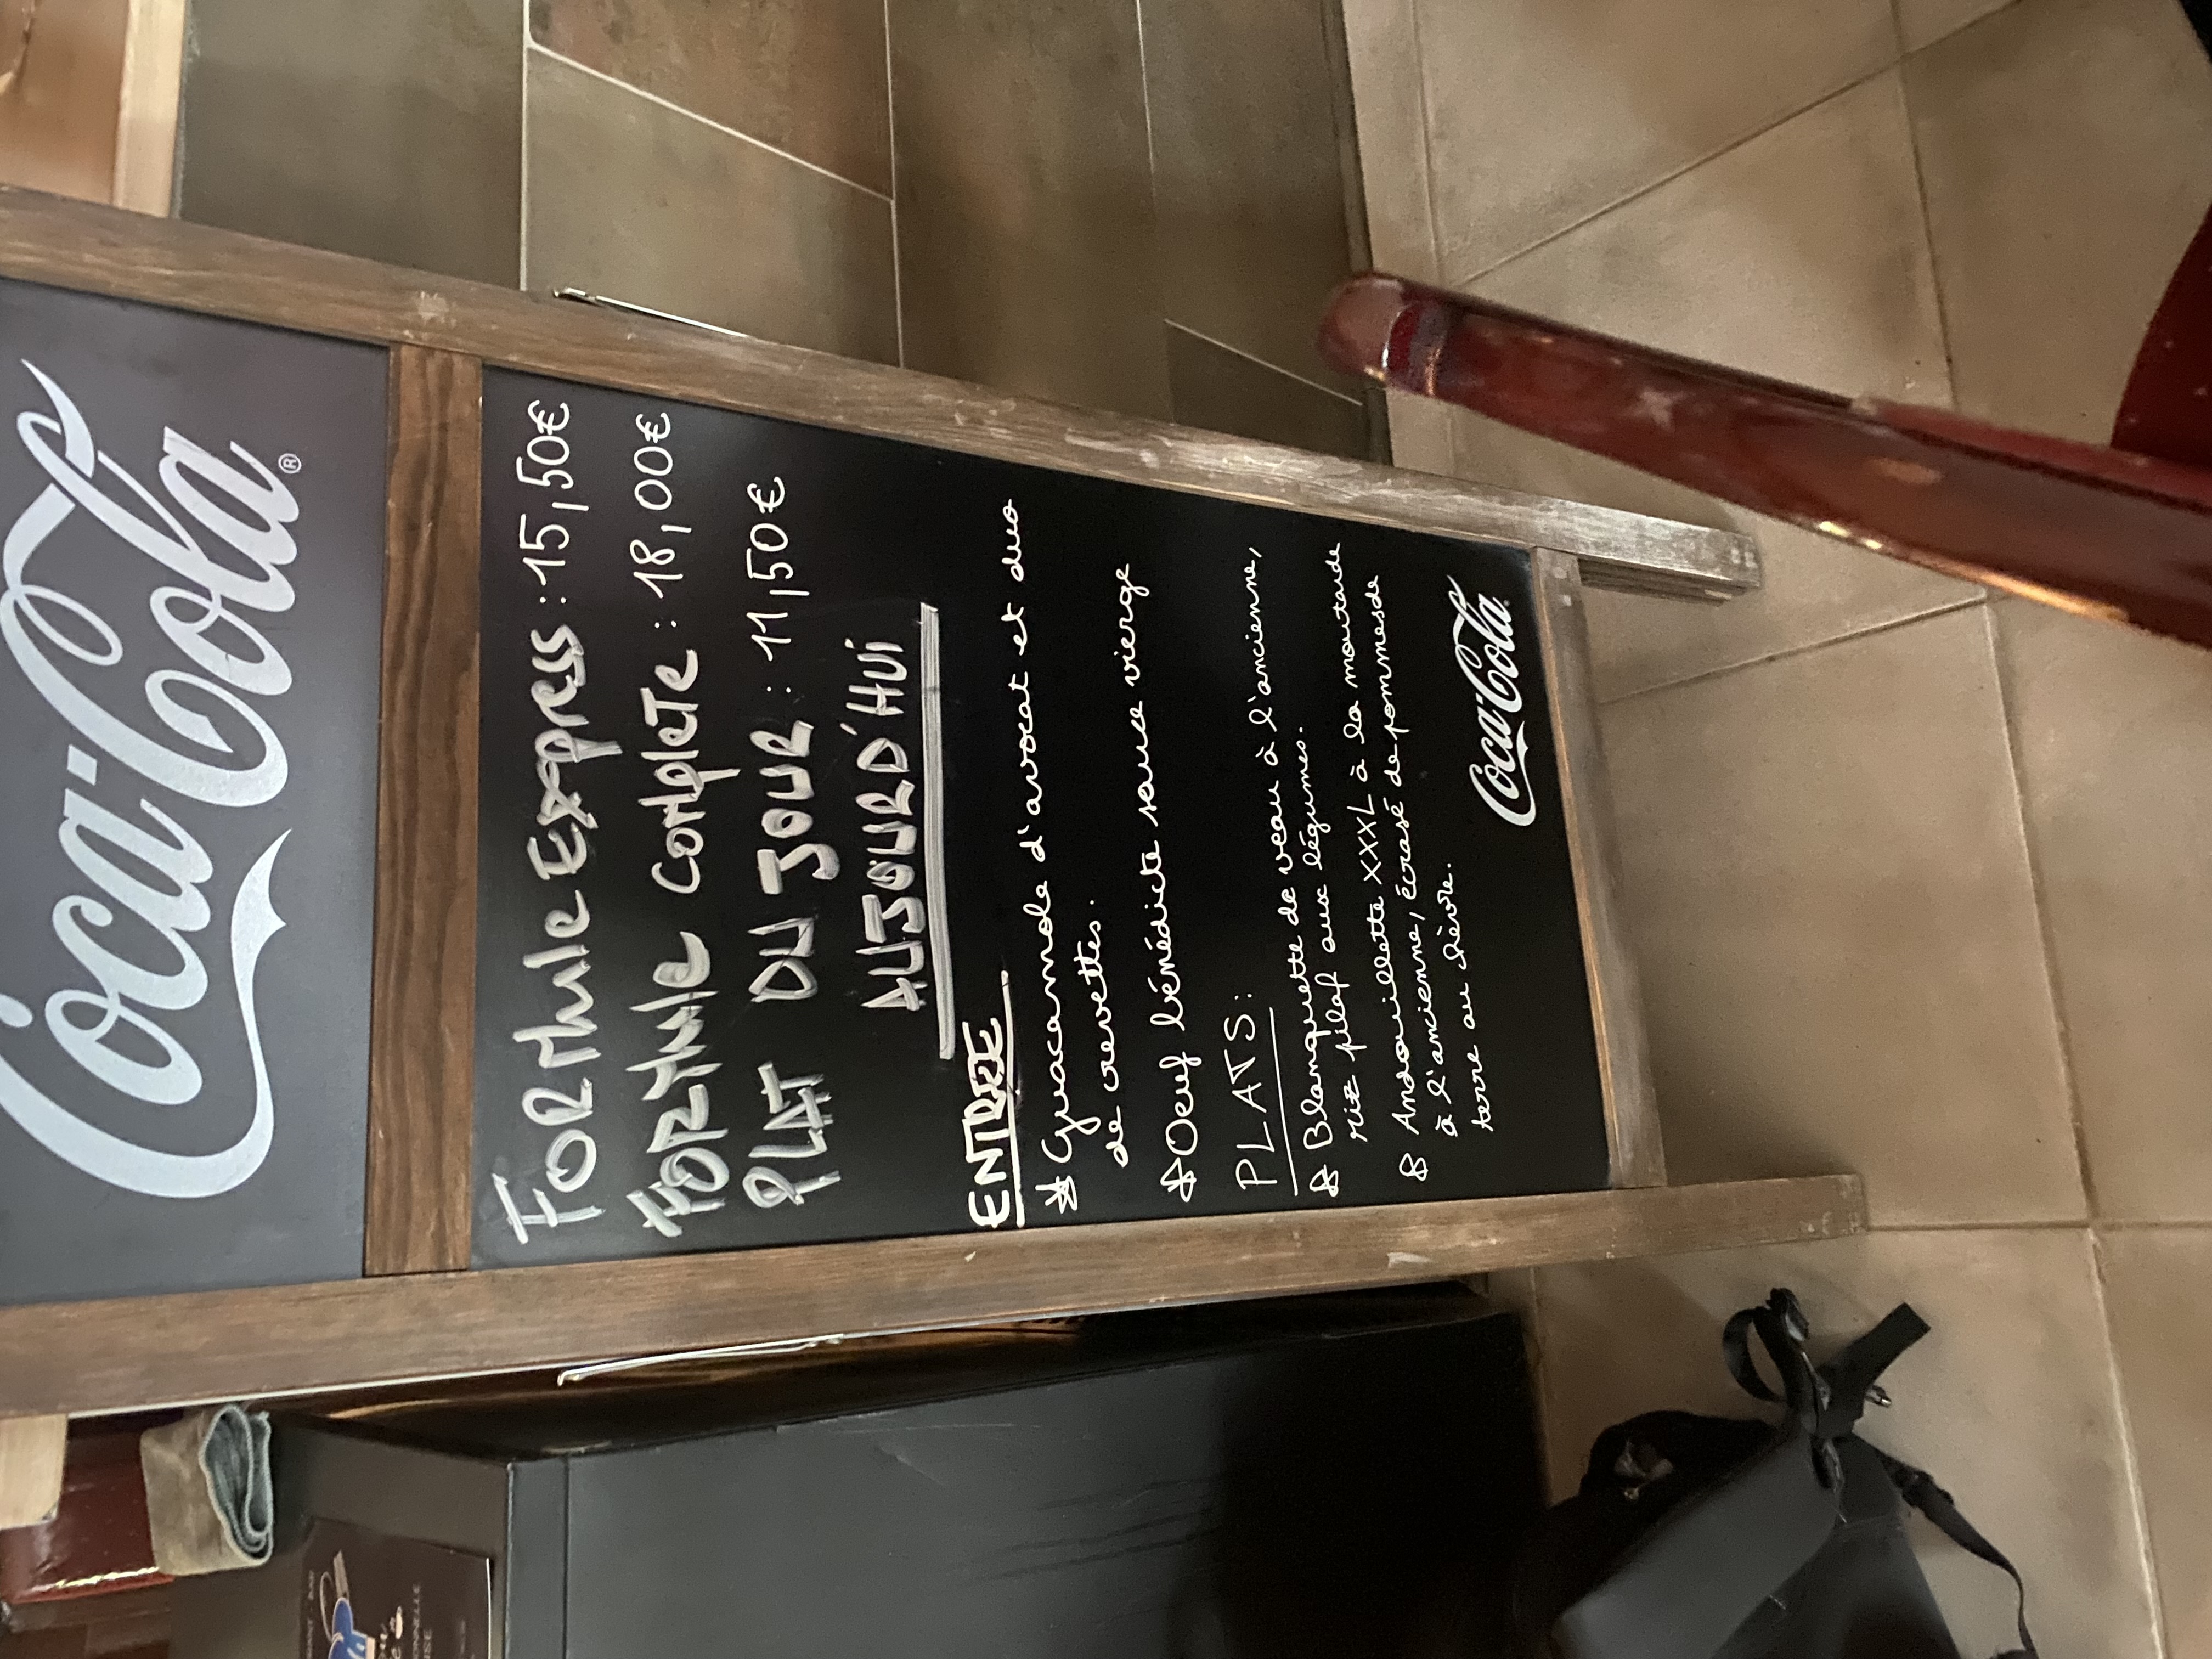 Coca-Cola®
FORMULE EXPRESS : 15,50€
FORMULE COMPLETE : 18,00€
PLAT DU JOUR : 11,50€
AUJOURD'HUI
ENTREE
* Guacamole d'avocat et duo
de crevettes.
* Oeuf bénédicte sauce vierge
PLATS :
* Blanquette de veau à l'ancienne,
riz pilaf aux légumes.
* Andouillette XXXL à la moutarde
à l'ancienne, écrasé de pommes de
terre au chèvre.
Coca-Cola